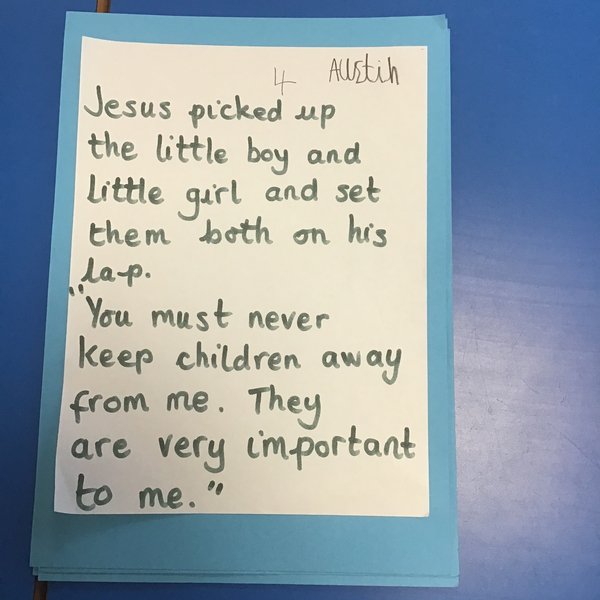 4 Austin
Jesus picked up
the little boy and
little girl and set
them both on his
lap.
"You must never
keep children away
from me. They
are very important
to me."